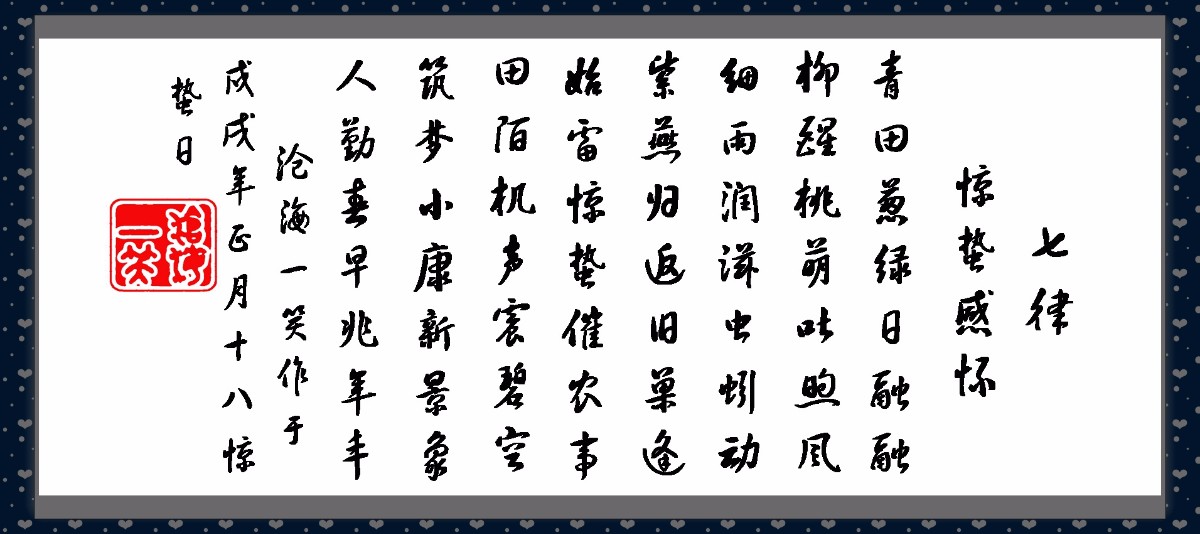 七律
惊蛰感怀
青田葱绿日融融
柳醒桃萌吐煦风
细雨润滋虫蚓动
紫燕归返旧巢逢
始雷惊蛰催农事
田陌机声宸碧空
筑梦小康新景象
人勤春早兆年丰
沧海一笑作于
戊戌年正月十八惊
蛰日
沧海一笑